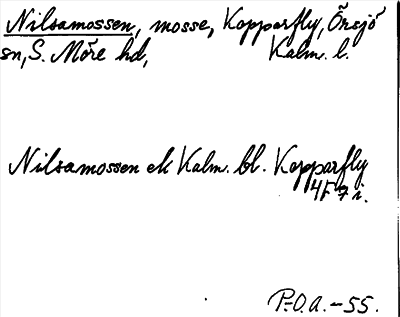 Nilsamossen, mosse, Kopparfly, Örsjö
sn, S. Möre hd, Kalm. l.
Nilsamossen ek Kalm. bl. Kopparfly
4F 7 i.
P.O.a.-55.